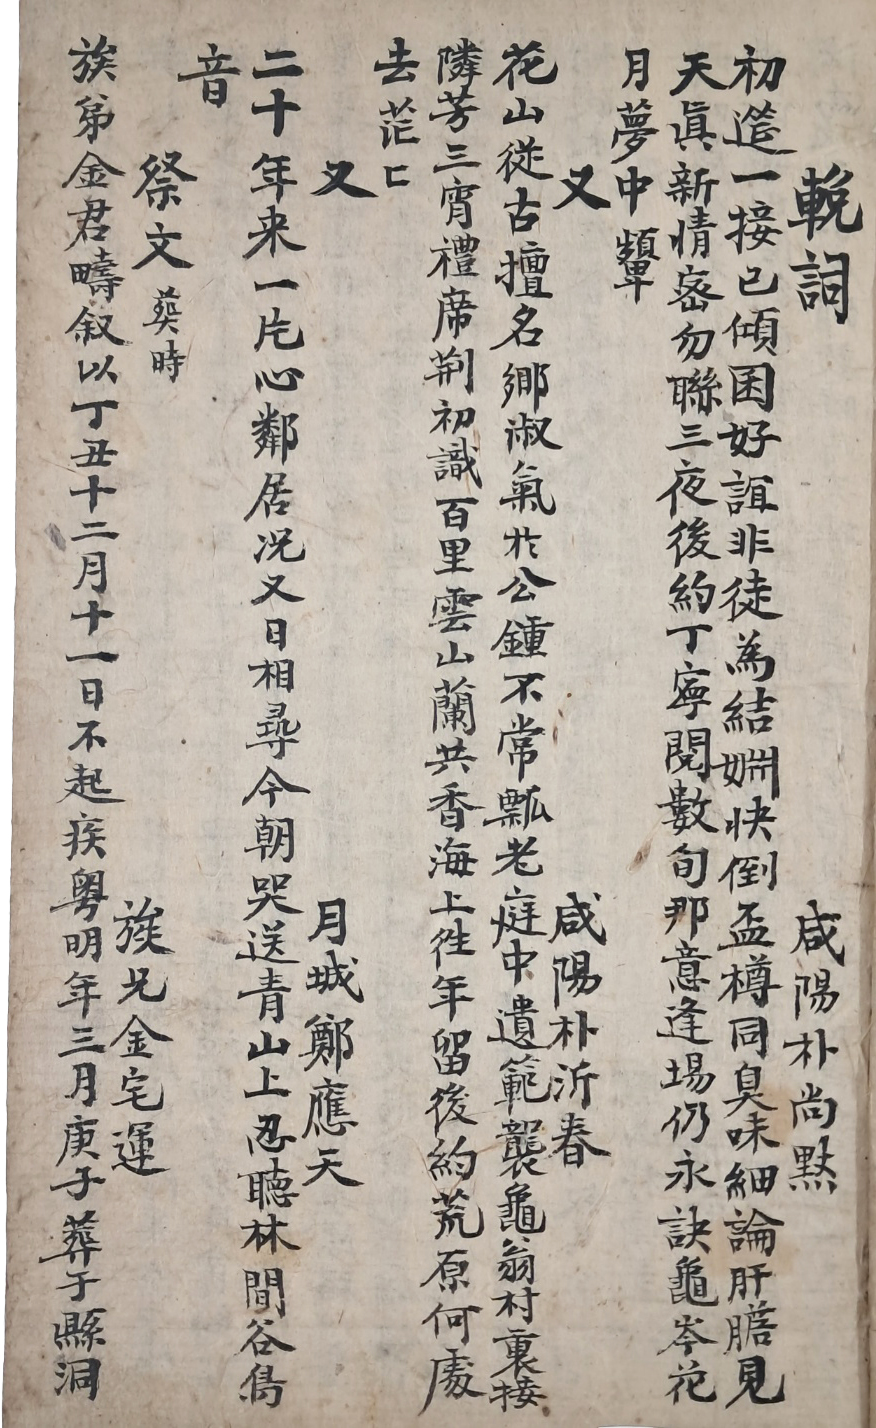 輓詞 咸陽朴尚黙
初筵一接已傾囷好誼非徒為結姻快倒盃樽同臭味細論肝膽見
天眞新情密勿聯三夜後約丁寧閱數旬那意逢場仍永訣龜岑花
月夢中顰
又 咸陽朴沂春
花山從古擅名鄉淑氣於公鍾不常瓢老庭中遺範襲龜翁村裏接
隣芳三宵禮席荆初識百里雲山蘭共香海上徃年留後約荒原何處
去茫匸
又 月城鄭應天
二十年来一片心鄰居况又日相尋今朝哭送青山上忍聽林間谷鳥
音
祭文 葬時 族兄金宅運
族弟金君疇叙以丁丑十二月十一日不起疾粤明年三月庚子葬于縣洞